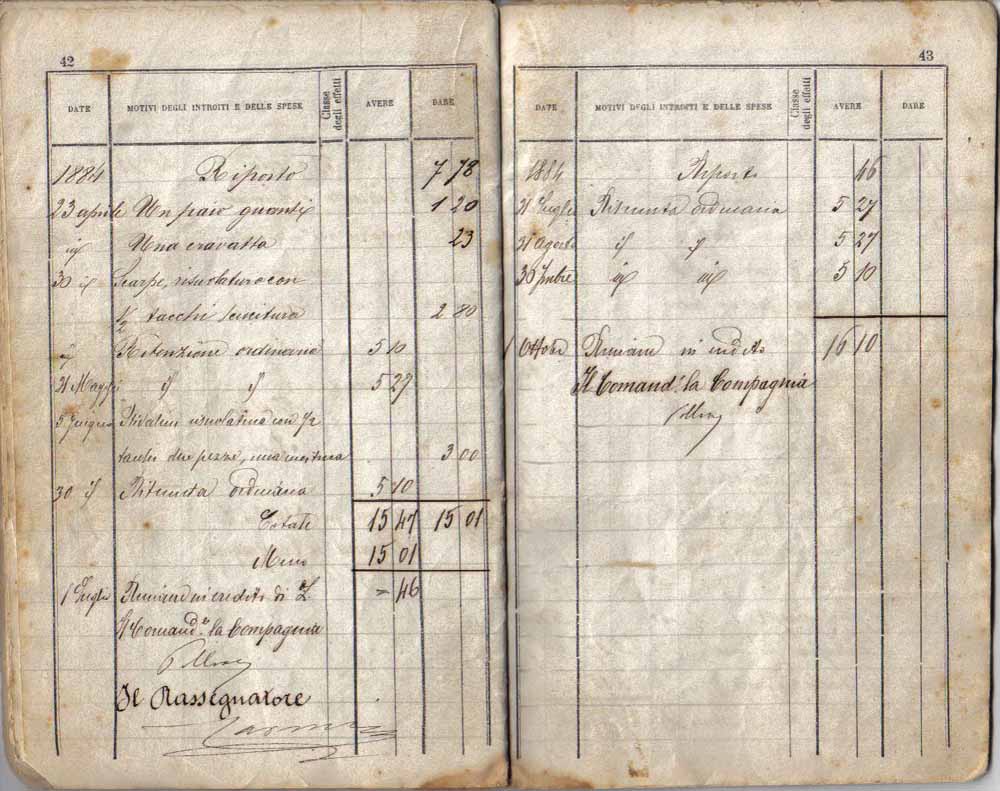 42
DATE MOTIVI DEGLI INTROITI E DELLE SPESE Classe degli effetti AVERE DARE
1884 Riporto 7 78
23 aprile Un paio guanti 1 20
id Una cravatta 23
30 id Scarpe, risuolatura con
1/2 tacchi 2 80
Ritenzione ordinaria 5 10
31 Maggio id id 5 27
5 Giugno risuolatura con 1/2
tacchi due pezze, una 3 00
30 id Ritenuta ordinaria 5 10
Totale 15 47 15 01
Meno 15 01
1 Luglio Rimane in credito di L. = 46
Il Comand.te la Compagnia
Il Rassegnatore
43
DATE MOTIVI DEGLI INTROITI E DELLE SPESE Classe degli effetti AVERE DARE
1884 Riporto 46
31 Luglio Ritenuta ordinaria 5 27
31 agosto id id 5 27
30 7mbre id id 5 10
1 Ottobre Rimane in credito 16 10
Il Comand.te la Compagnia